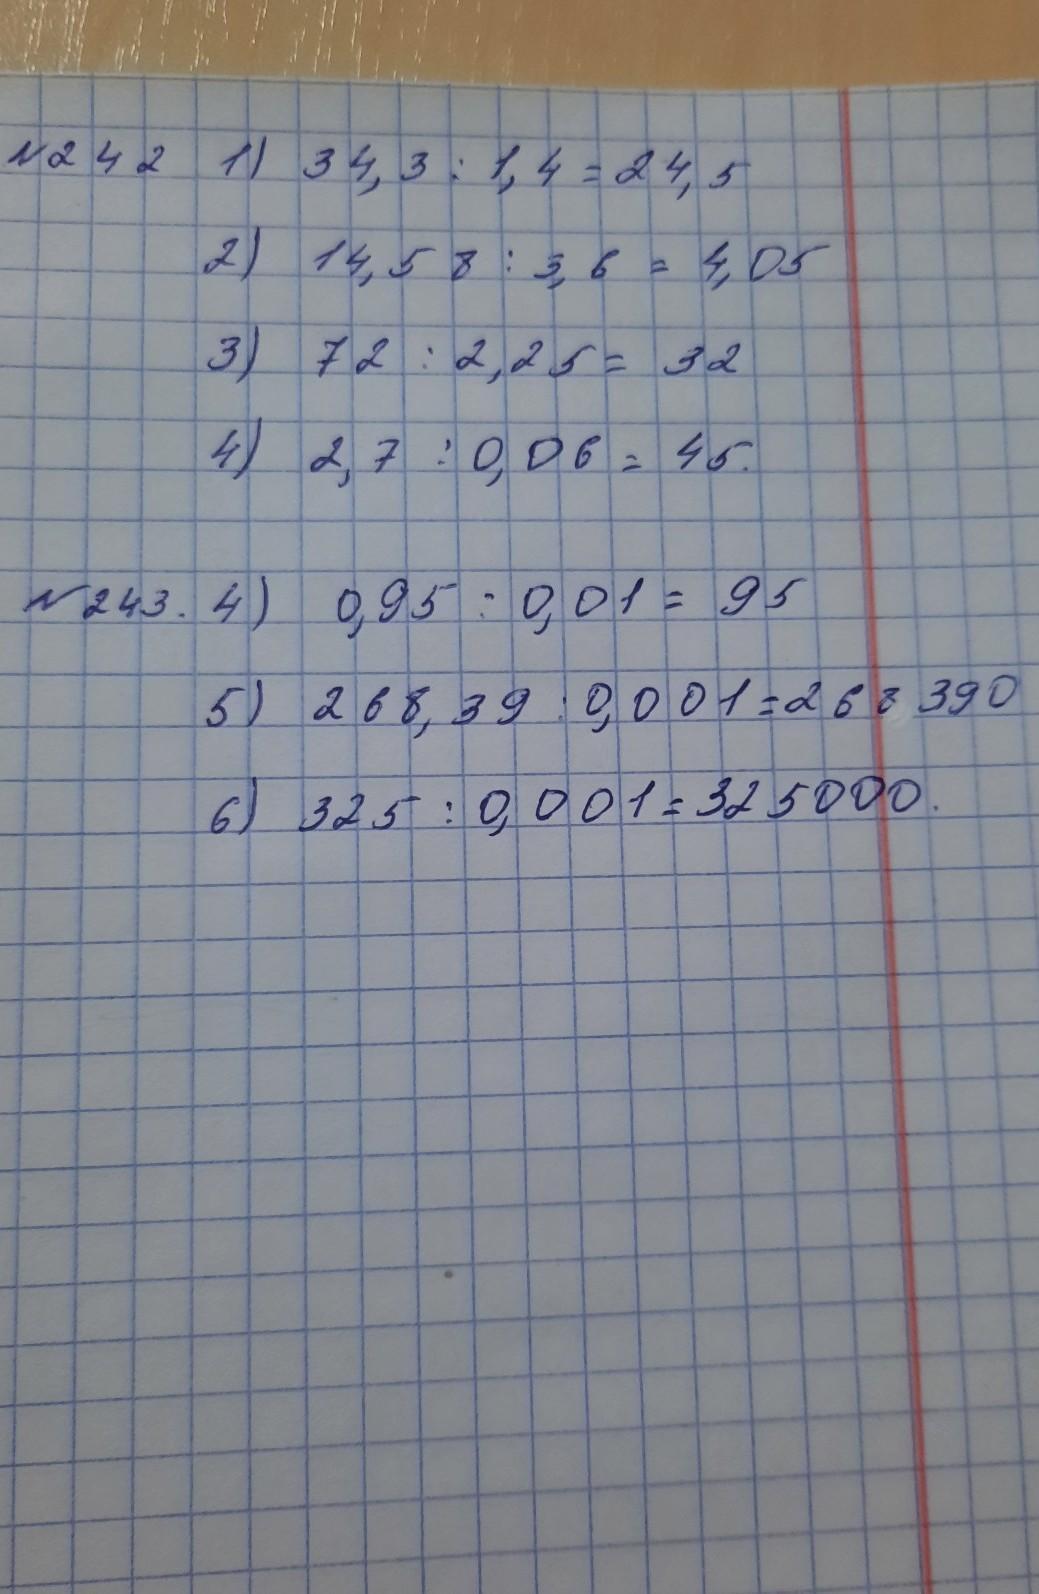 №242 1) 34,3 : 1,4 = 24,5
2) 14,58 : 3,6 = 4,05
3) 72 : 2,25 = 32
4) 2,7 : 0,06 = 45.
№243. 4) 0,95 : 0,01 = 95
5) 268,39 : 0,001 = 268390
6) 325 : 0,001 = 325000.